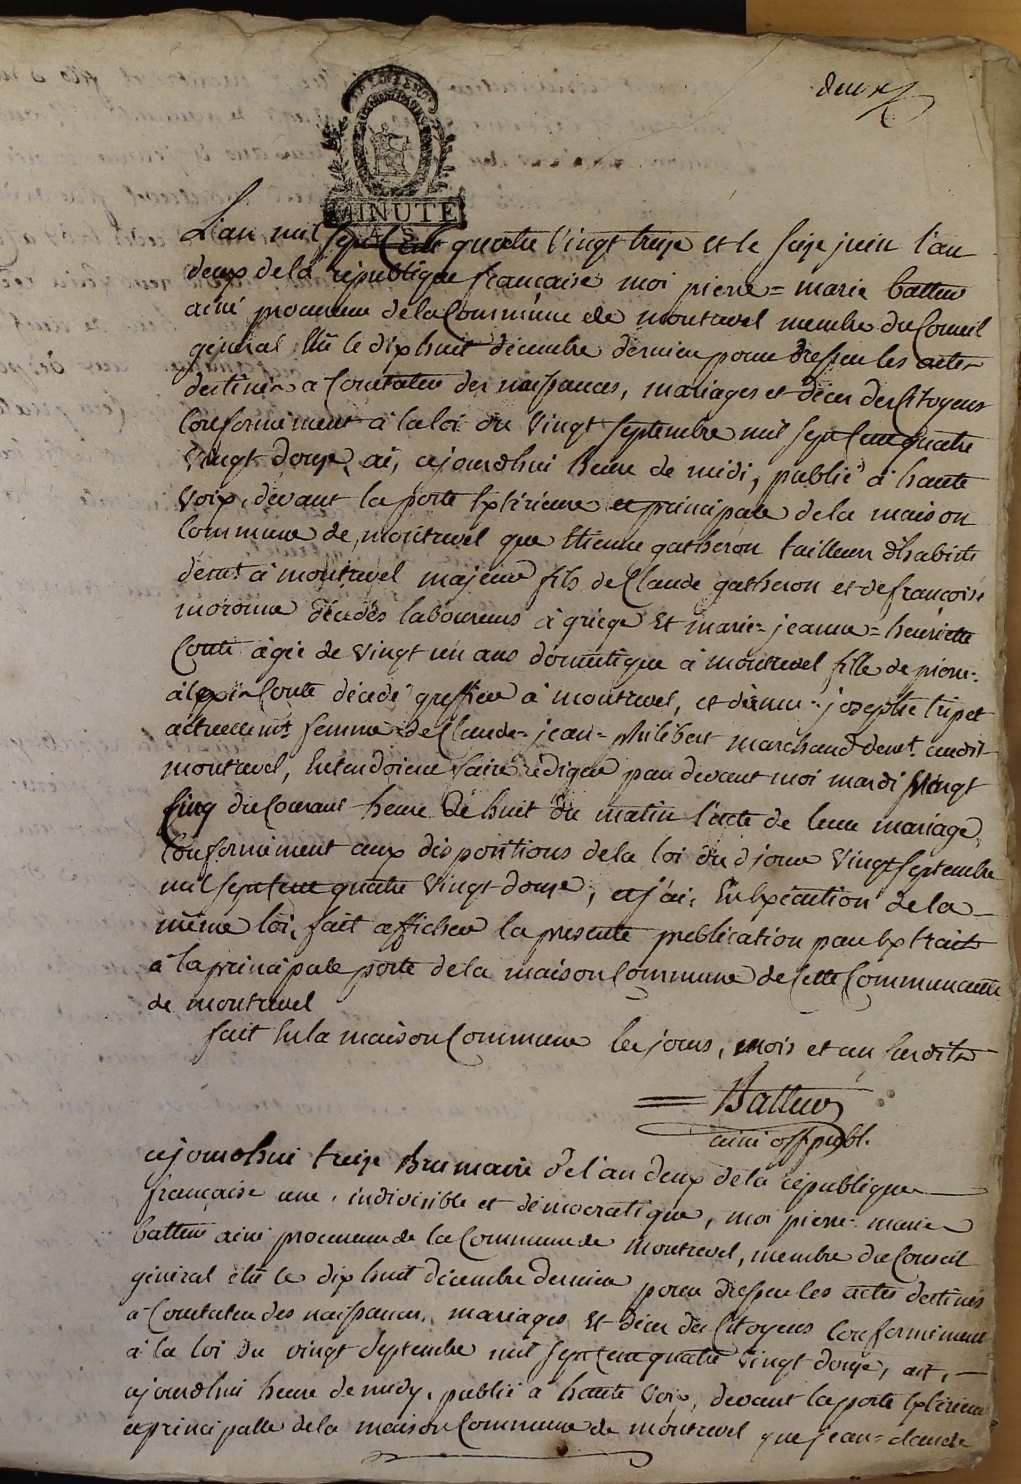 deux
MINUTE
L'an mil sept Cent quatre Vingt treize et le seize juin l'an
deux de la république française moi pierre = marie battur
ainé procureur de la Commune de montrevel membre du Conseil
général Elu le dix huit decembre dernier pour dresser les actes
destinés a Constater des naissances, mariages et décès des Citoyens
Conformément à la loi du Vingt septembre mil sept Cent quatre
Vingt douze, ai, cejourdhui heure de midi, publié à haute
Voix, devant la porte Extérieure et principale de la maison
Commune de montrevel que Etienne gatheron tailleur d'habits
demt à montrevel majeur fils de Claude gatheron et de françoise
moronne décédés laboureurs à griège Et marie = jeanne = henriette
Conte agée de Vingt un ans domestique à montrevel fille de pierre =
alexis Conte décédé greffier à montrevel, et d'anne = josephe tripet
actuellemt femme de Claude = jean = philibert marchand demt. audit
montrevel, Entendoient faire rediger par devant moi mardi Vingt
Cinq du Courant heure de huit du matin l'acte de leur mariage,
Conformement aux dispositions de la loi du d jour Vingt septembre
mil sept cent quatre Vingt douze, et j'ai, En Exécution de la
même loi, fait afficher la presente publication par Extrait
à la principale porte de la maison Commune de Cette Commune
de montrevel
fait En la maison Commune les jours, mois et an susdits
= Battur
ainé off. publ.
cejourdhui treize Brumaire de l'an deux de la république
française une, indivisible et démocratique, moi pierre = marie
battur ainé procureur de la Commune de montrevel, membre du Conseil
général élu le dix huit décembre dernier pour dresser les actes destinés
a Constater des naissances, mariages Et décès des Citoyens Conformément
à la loi du vingt septembre mil sept cent quatre Vingt douze, ai,
cejourdhui heure de midy, publié a haute Voix, devant la porte Extérieure
et principalle de la maison Commune de montrevel que jean = claude